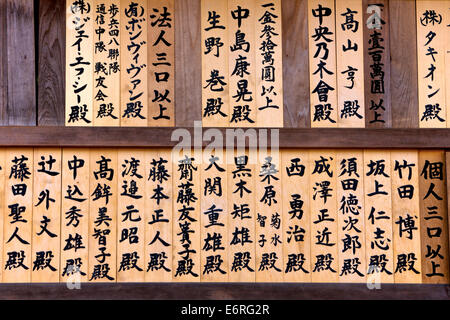 (株)タキオン殿
金壱百萬圓以上
高山亨殿
中央乃木會殿
一金参拾萬圓以上
中島康晃殿
生野巻殿
法人三口以上
(有)ボンヴィヴァン殿
歩兵四八聯隊
通信中隊戦友会殿
(株)ジェイ・エフ・シー殿
個人三口以上
竹田博殿
坂上仁志殿
須田徳次郎殿
成澤正近殿
西勇治殿
桑原菊水
智子殿
黒木矩雄殿
大関重雄殿
齋藤友美子殿
藤本正人殿
渡邉元昭殿
高鉾美智子殿
中込秀殿
辻外文殿
藤田聖人殿